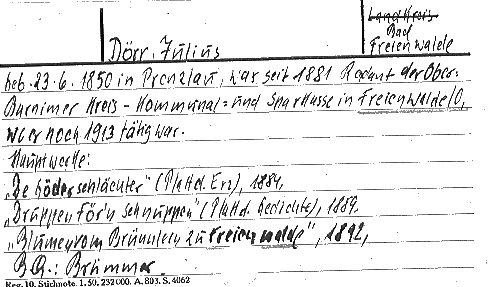 Land Kreis
Bad
Dörr, Julius
Freienwalde
geb. 23.6.1850 in Prenzlau, war seit 1881 Rendant der Ober-
Barnimer Kreis-Kommunal- und Sparkasse in Freienwalde/O,
wo er noch 1913 tätig war.
Hauptwerke:
"De Göderschlächter" (Plattd. Erz), 1884,
"Druppen för'n Schnuppen" (Plattd. Gedichte), 1889,
"Blumen vom Brünnlein zu Freienwalde", 1892,
B.Q.: Brümmer.
Reg. 10. Stichnote. 1. 50. 232000. A. 803. S. 4062